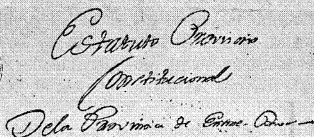 Estatuto Provisorio
Constitucional
De la Provincia de Entre-Rios